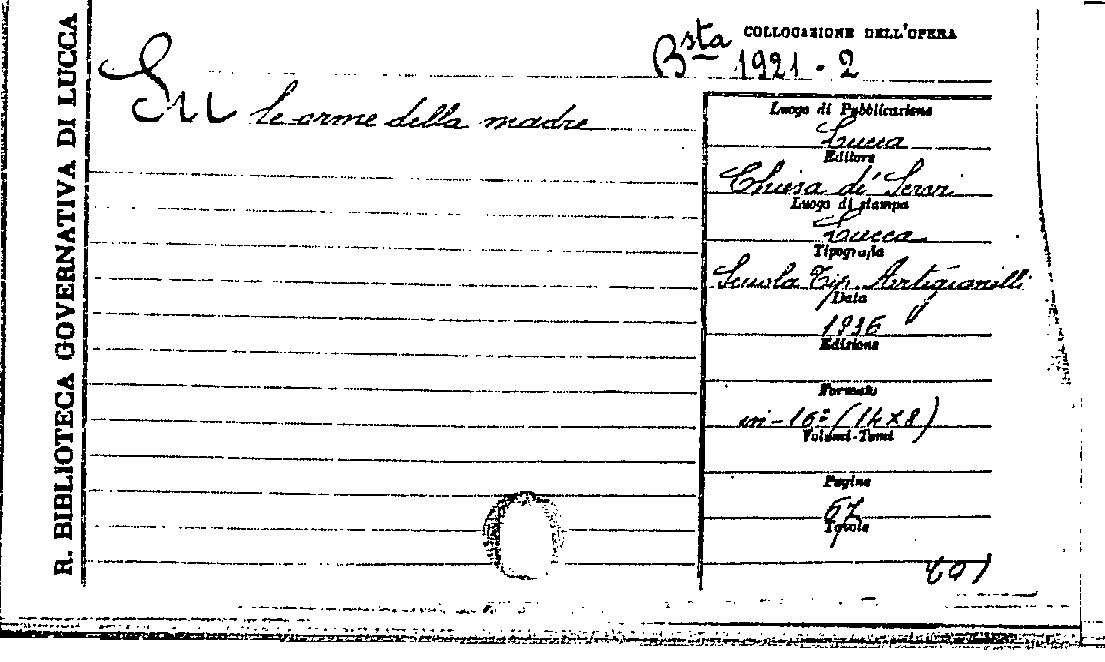 R. BIBLIOTECA GOVERNATIVA DI LUCCA
COLLOCAZIONE DELL'OPERA
Bsta 1921-2
Su le orme della madre
Luogo di Pubblicazione
Lucca
Editore
Chiesa de' Servi
Luogo di stampa
Lucca
Tipografia
Scuola Tip. Artigianelli
Data
1936
Edizione
Formato
in-16º (14x8)
Volumi-Tomi
Pagine
67
Tavole